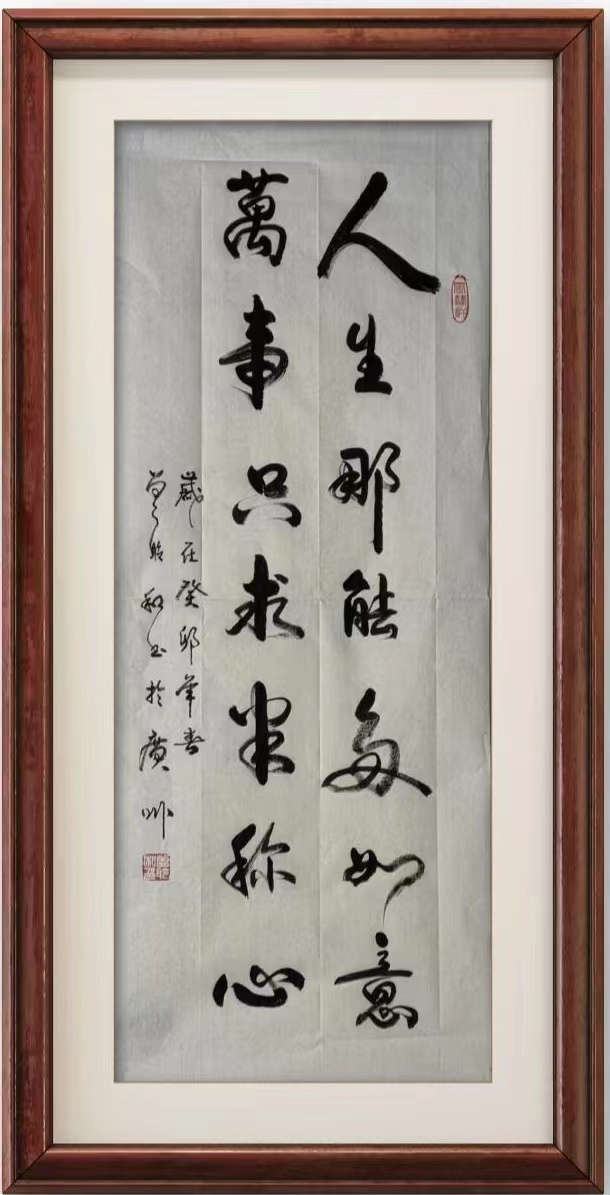 人生那能多如意
萬事只求半称心
歲在癸卯年春
昭和书於廣州